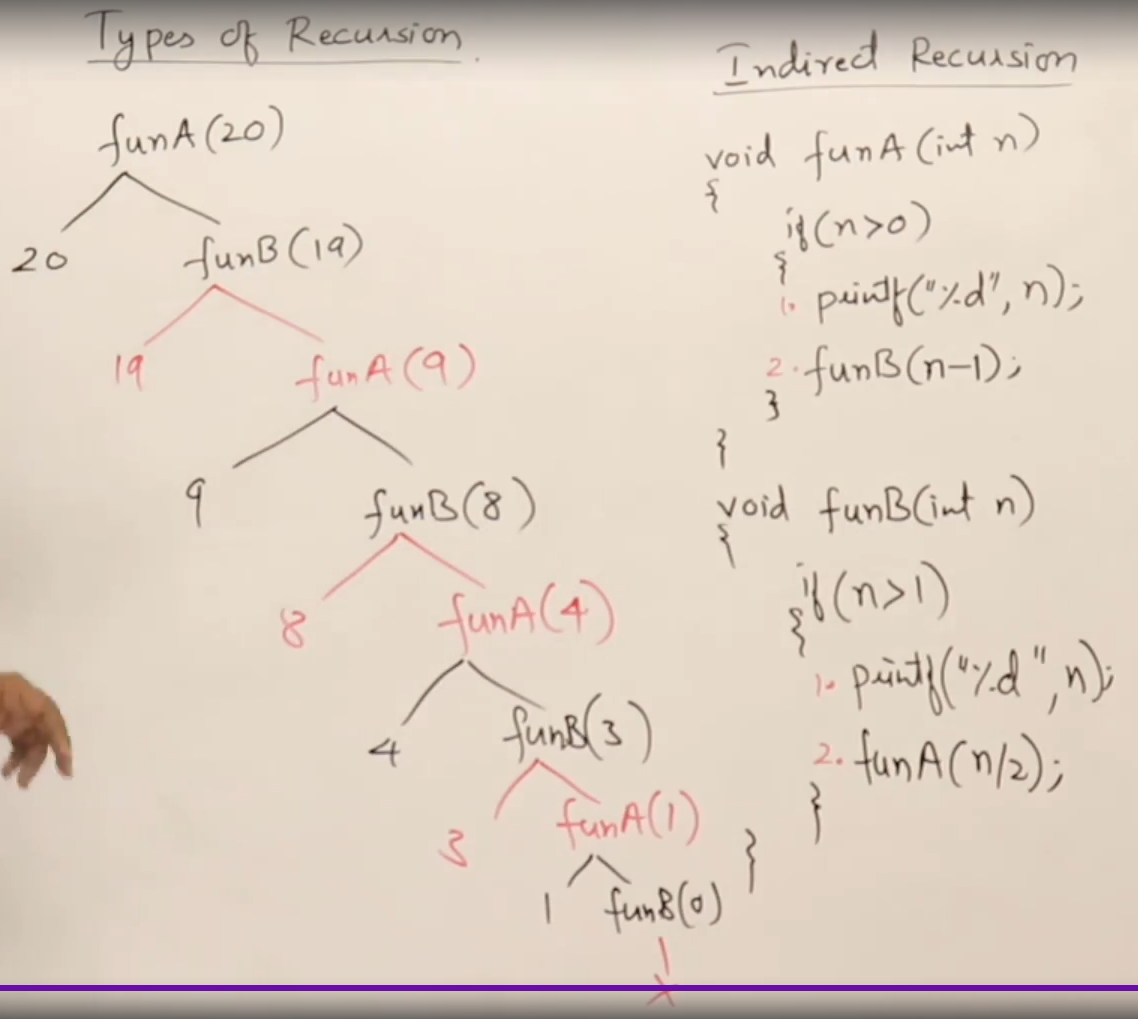 Types of Recursion.
funA(20)
20 funB(19)
19 funA(9)
9 funB(8)
8 funA(4)
4 funB(3)
3 funA(1)
1 funB(0)
X
Indirect Recursion
void funA(int n)
{
if(n>0)
{
1. printf("%d", n);
2. funB(n-1);
}
}
void funB(int n)
{
if(n>1)
{
1. printf("%d", n);
2. funA(n/2);
}
}